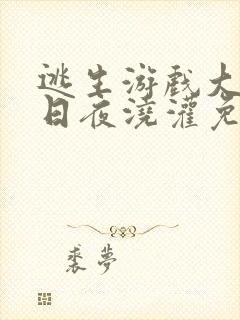 逃生游戏大
日夜浇灌免
裘夢